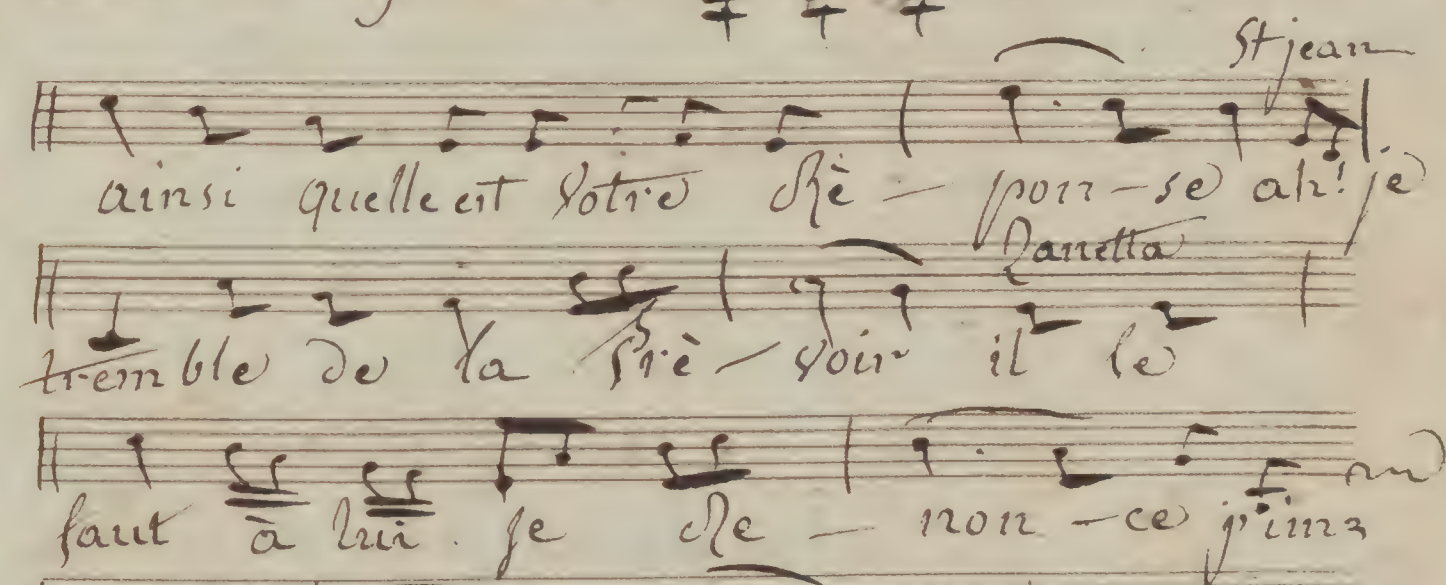 St jean
ainsi quelle est votre Rè - pon - se ah! je
Zanetta
tremble de la Prè - voir il le
faut à lui je Re - non - ce j'ima